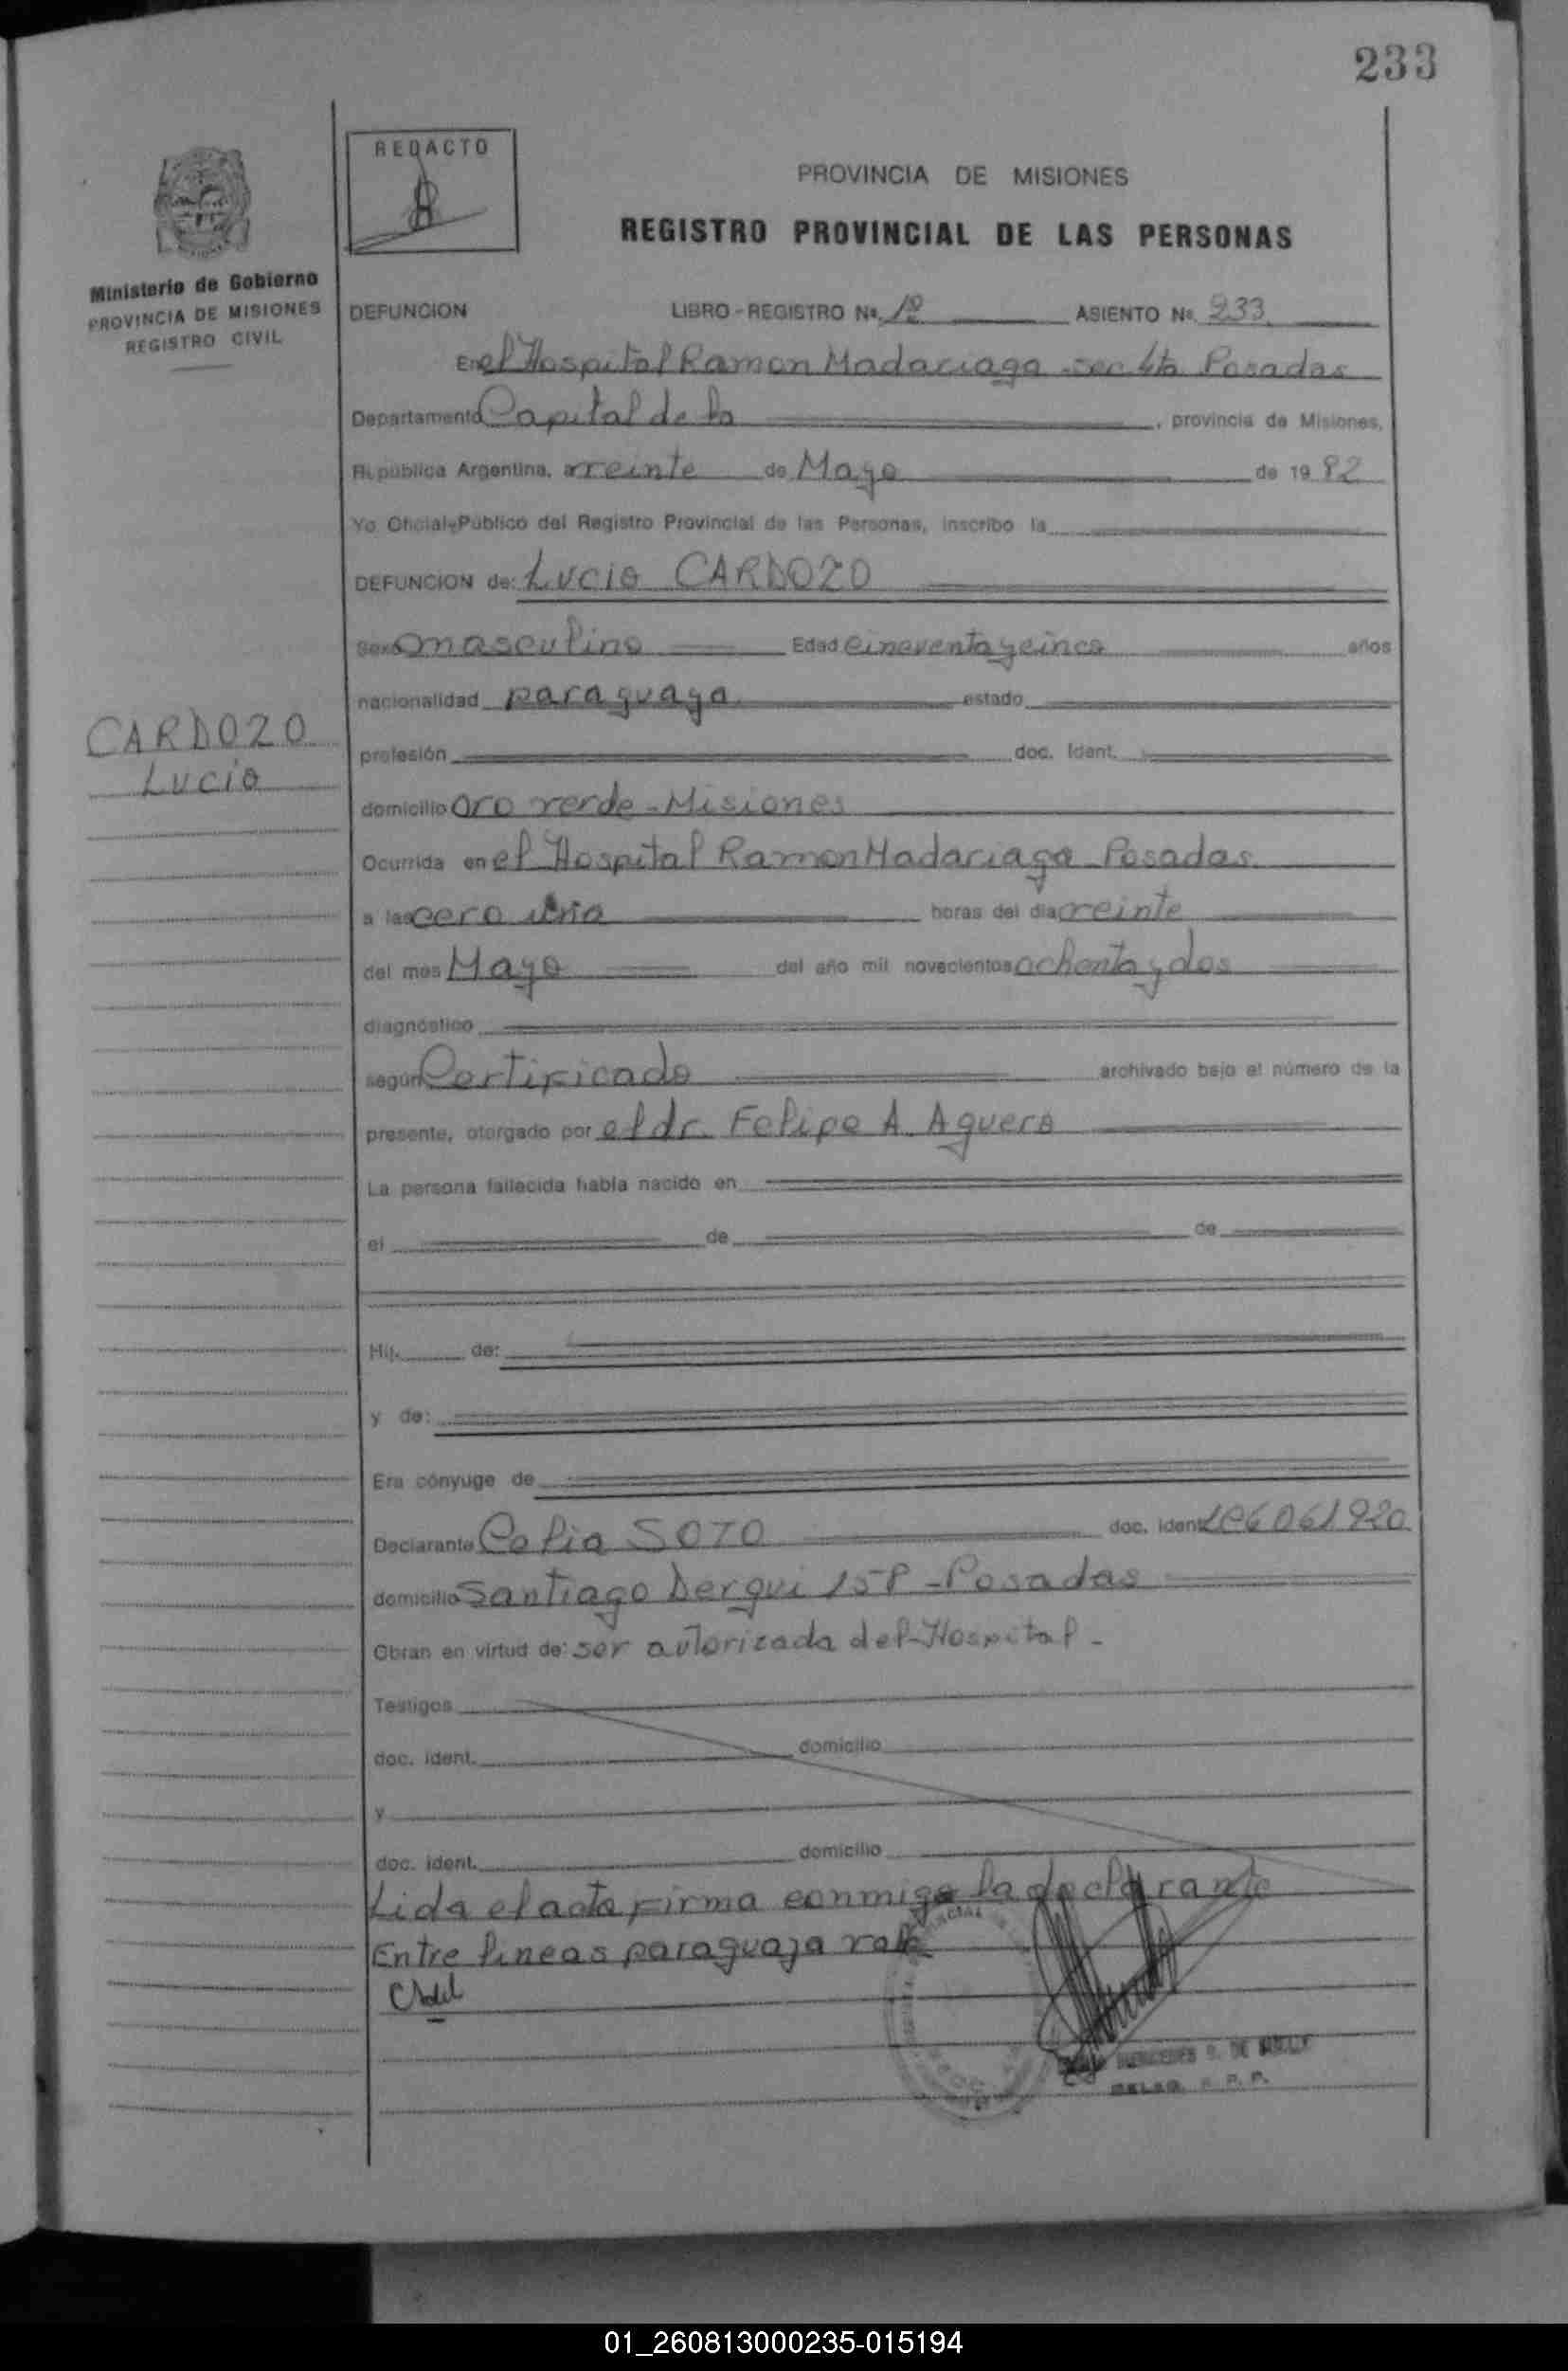 233
REDACTO
PROVINCIA DE MISIONES
REGISTRO PROVINCIAL DE LAS PERSONAS
Ministerio de Gobierno
PROVINCIA DE MISIONES
REGISTRO CIVIL
DEFUNCION LIBRO - REGISTRO Nº. 1º ASIENTO Nº. 233
En el Hospital Ramon Madariaga sec 4ta Posadas
Departamento Capital de la , provincia de Misiones,
República Argentina, a veinte de Mayo de 19 82
Yo Oficial Público del Registro Provincial de las Personas, inscribo la
DEFUNCION de: Lucio CARDOZO
Sexo masculino Edad cincuenta y cinco años
nacionalidad paraguaya estado
CARDOZO
Lucio
profesión doc. Ident.
domicilio Oro verde - Misiones
Ocurrida en el Hospital Ramon Madariaga Posadas
a las cero horas del día veinte
del mes Mayo del año mil novecientos ochenta y dos
diagnóstico
según Certificado archivado bajo el número de la
presente, otorgado por el dr. Felipe A. Aguero
La persona fallecida había nacido en
el de de
Hij de:
y de:
Era cónyuge de
Declarante Celia SOTO doc. ident LC6061920
domicilio Santiago Derqui 158 - Posadas
Obran en virtud de: ser autorizada del Hospital -
Testigos
doc. ident. domicilio
y
doc. ident. domicilio
Lida el acta firma conmigo la declarante
Entre lineas paraguaya vale
01_260813000235-015194